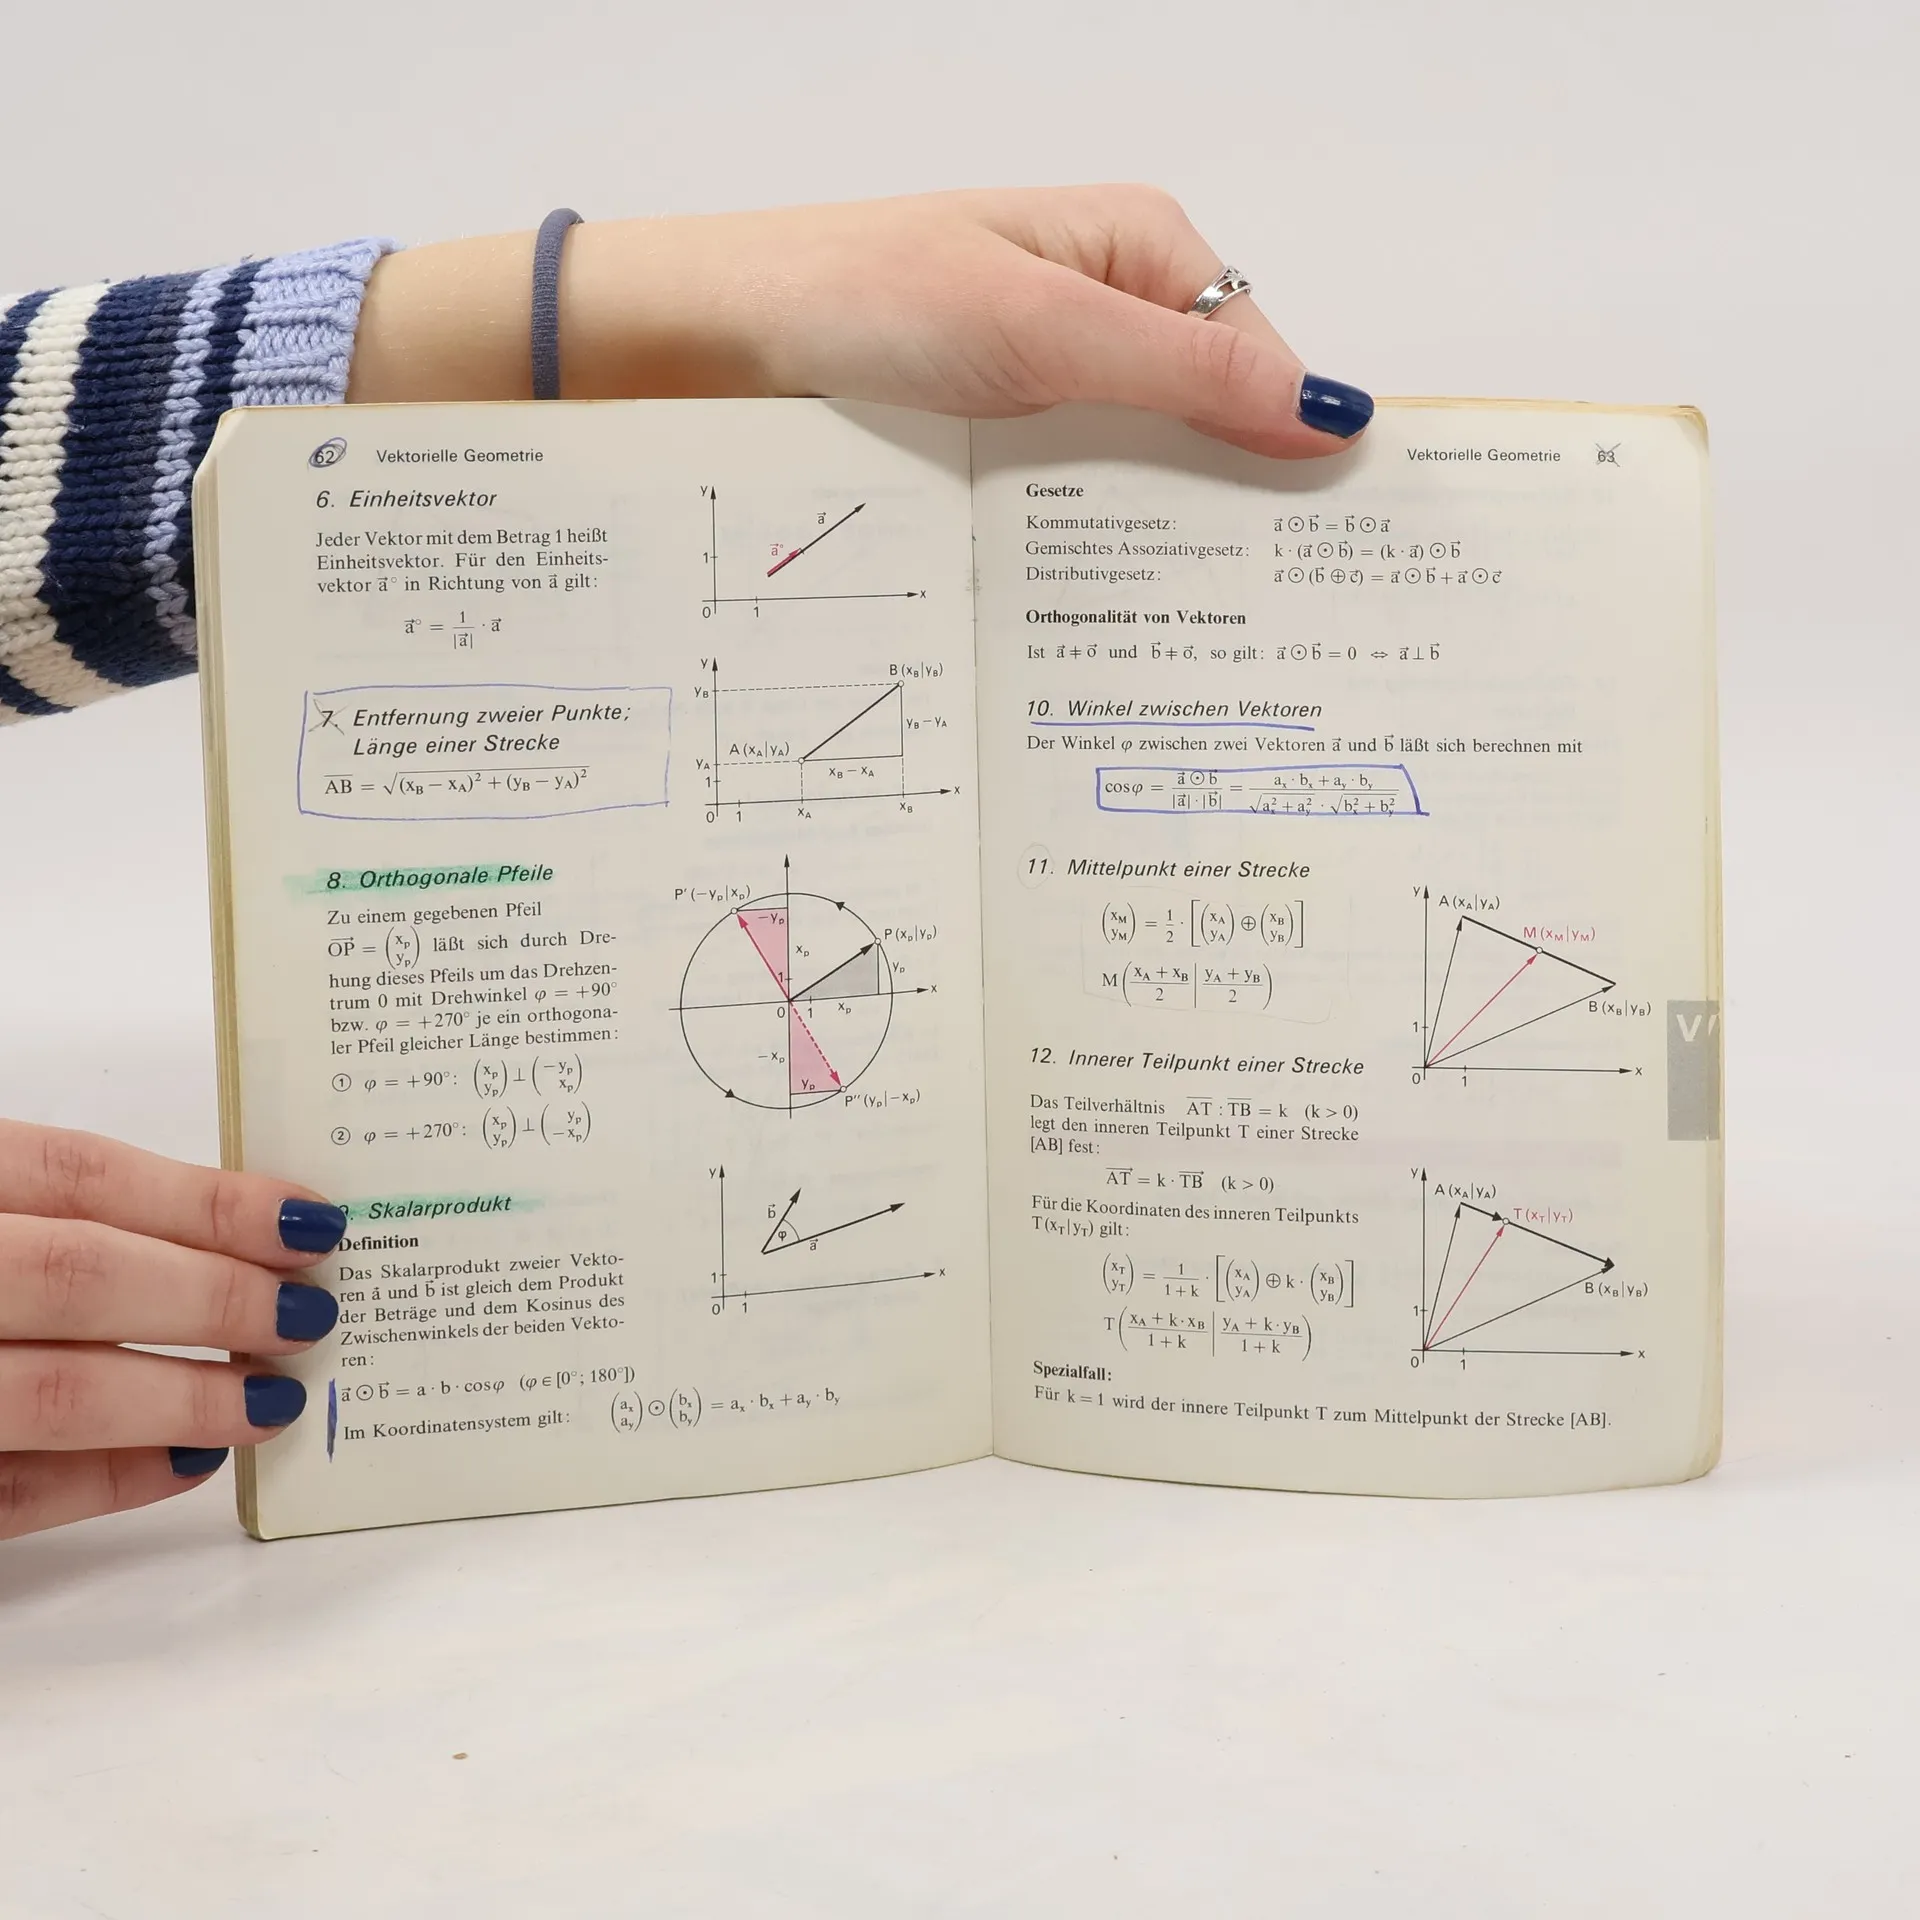 62 Vektorielle Geometrie
6. Einheitsvektor
Jeder Vektor mit dem Betrag 1 heißt
Einheitsvektor. Für den Einheits-
vektor a⃗° in Richtung von a⃗ gilt:
a⃗° = 1/|a⃗| · a⃗
y
a⃗
a⃗°
1
0 1 x
7. Entfernung zweier Punkte;
Länge einer Strecke
AB̅ = √(x_B − x_A)² + (y_B − y_A)²
y
B (x_B|y_B)
y_B
y_B − y_A
A (x_A|y_A)
y_A
x_B − x_A
1
0 1 x_A x_B x
8. Orthogonale Pfeile
Zu einem gegebenen Pfeil
OP⃗ = (x_p y_p) läßt sich durch Dre-
hung dieses Pfeils um das Drehzen-
trum 0 mit Drehwinkel φ = +90°
bzw. φ = +270° je ein orthogona-
ler Pfeil gleicher Länge bestimmen:
① φ = +90°: (x_p y_p) ⊥ (−y_p x_p)
② φ = +270°: (x_p y_p) ⊥ (y_p −x_p)
P′ (−y_p|x_p)
−y_p
P (x_p|y_p)
x_p
y_p
1
x
0 1 x_p
−x_p
y_p
P″ (y_p|−x_p)
9. Skalarprodukt
Definition
Das Skalarprodukt zweier Vekto-
ren a⃗ und b⃗ ist gleich dem Produkt
der Beträge und dem Kosinus des
Zwischenwinkels der beiden Vekto-
ren:
a⃗ ⊙ b⃗ = a · b · cosφ (φ ∈ [0°; 180°])
Im Koordinatensystem gilt: (a_x a_y) ⊙ (b_x b_y) = a_x · b_x + a_y · b_y
y
b⃗
φ
a⃗
1
0 1 x
Vektorielle Geometrie 63
Gesetze
Kommutativgesetz: a⃗ ⊙ b⃗ = b⃗ ⊙ a⃗
Gemischtes Assoziativgesetz: k · (a⃗ ⊙ b⃗) = (k · a⃗) ⊙ b⃗
Distributivgesetz: a⃗ ⊙ (b⃗ ⊕ c⃗) = a⃗ ⊙ b⃗ + a⃗ ⊙ c⃗
Orthogonalität von Vektoren
Ist a⃗ ≠ o⃗ und b⃗ ≠ o⃗, so gilt: a⃗ ⊙ b⃗ = 0 ⇔ a⃗ ⊥ b⃗
10. Winkel zwischen Vektoren
Der Winkel φ zwischen zwei Vektoren a⃗ und b⃗ läßt sich berechnen mit
cosφ = a⃗ ⊙ b⃗ / |a⃗| · |b⃗| = a_x · b_x + a_y · b_y / √a_x² + a_y² · √b_x² + b_y²
11. Mittelpunkt einer Strecke
(x_M y_M) = 1/2 · [(x_A y_A) ⊕ (x_B y_B)]
M (x_A + x_B / 2 | y_A + y_B / 2)
y
A (x_A|y_A)
M (x_M|y_M)
B (x_B|y_B)
1
0 1 x
VI
12. Innerer Teilpunkt einer Strecke
Das Teilverhältnis AT̅ : TB̅ = k (k > 0)
legt den inneren Teilpunkt T einer Strecke
[AB] fest:
AT⃗ = k · TB⃗ (k > 0)
Für die Koordinaten des inneren Teilpunkts
T(x_T|y_T) gilt:
(x_T y_T) = 1/1 + k · [(x_A y_A) ⊕ k · (x_B y_B)]
T (x_A + k · x_B / 1 + k | y_A + k · y_B / 1 + k)
y
A (x_A|y_A)
T (x_T|y_T)
B (x_B|y_B)
1
0 1 x
Spezialfall:
Für k = 1 wird der innere Teilpunkt T zum Mittelpunkt der Strecke [AB].